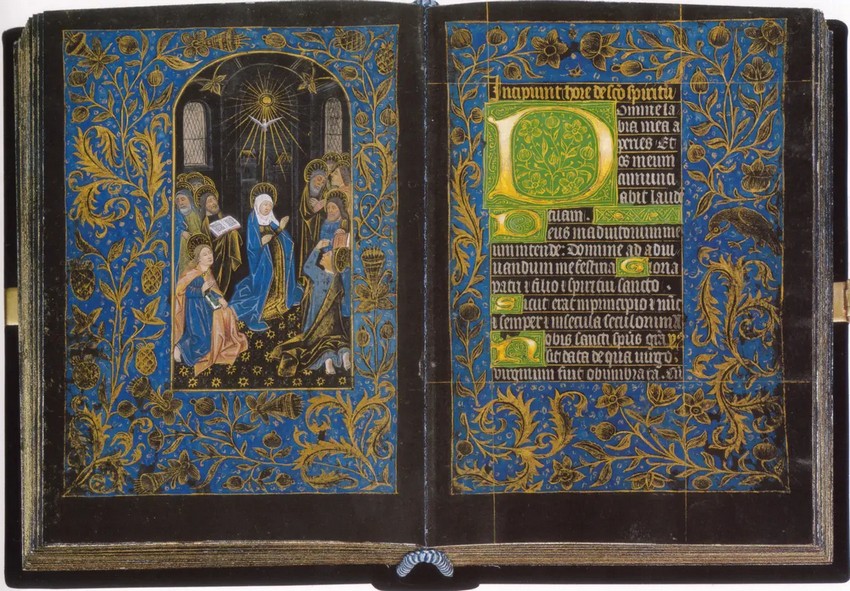 Incipiunt hore de sco spiritu
Domine la
bia mea a
peries Et
os meum
annunci
abit laude
tuam.
Deus in adiutorium me
um intende: Domine ad adiu
uandum me festina Gloria
patri ⁊ filio ⁊ spiritui sancto .
Sicut erat in principio ⁊ nūc
⁊ semper ⁊ in secula seculorum
Nobis sancti spūs gra
sit data de qua uirgo
virginum fuit obumbrata. Cū